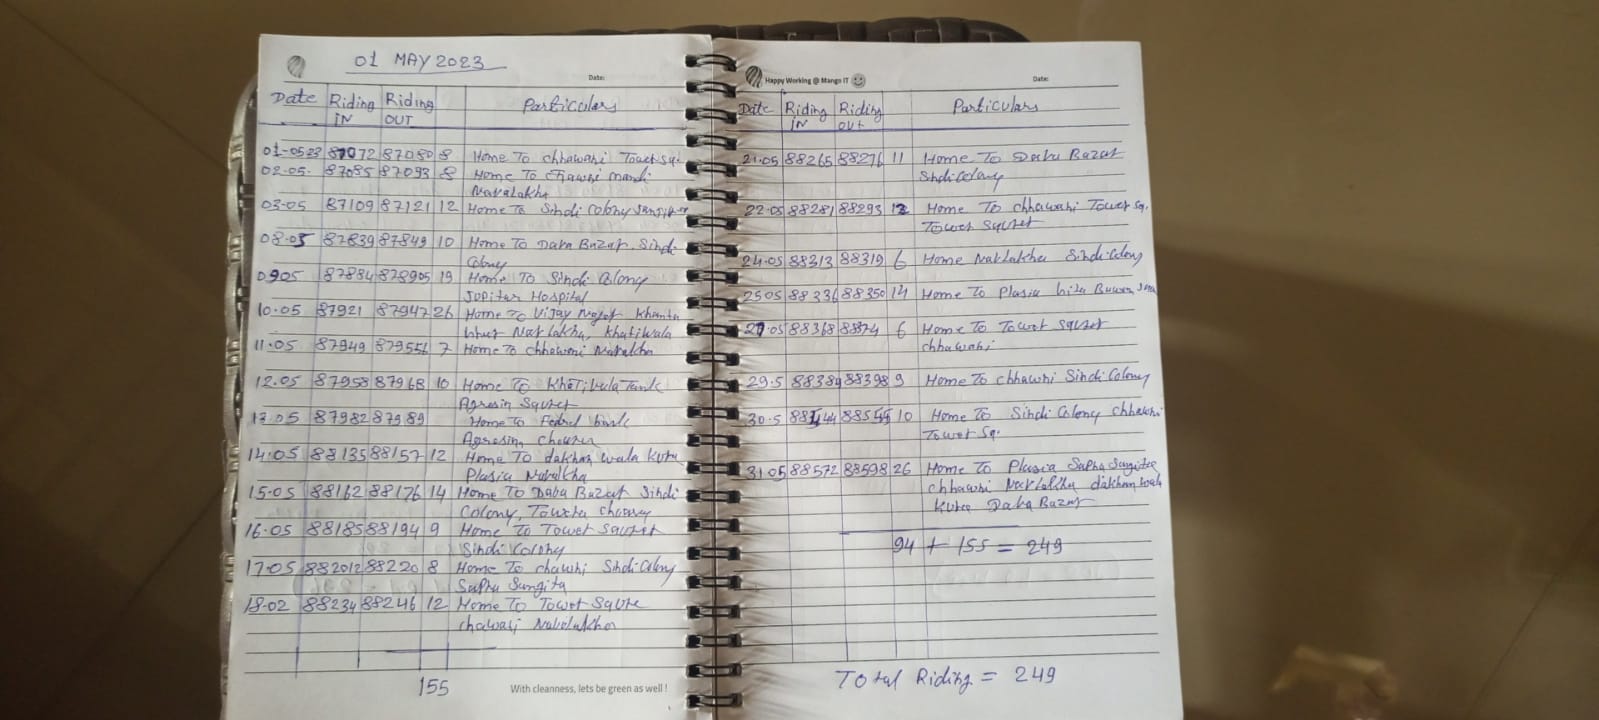 01 MAY 2023
Date:
Date Riding IN Riding OUT Particulars
01-0523 87072 87080 8 Home To chhawani Tower sq.
02.05. 87085 87093 8 Home To chawni mandi
Navalakha
03.05 87109 87121 12 Home To Sindi Colony
08.05 87839 87849 10 Home To Daba Bazar. Sindi
Colony
0905 87884 878905 19 Home To Sindi Colony
Jupitar Hospital
10.05 87921 87947 26 Home To Vijay Nagar Khanda
Navlakha, Khatiwala
11.05 87949 879556 7 Home To chhawani Navalakha
12.05 87958 87968 10 Home To Khatiwala Tank
Agresin Squrer
13.05 87982 87989 Home To Fedral bank
Agresin, chourer
14.05 88135 88157 12 Home To dakhan wala kuea
Plasia Navalkha
15.05 88162 88176 14 Home To Daba Bazar Sindi
Colony, Tower
16.05 88185 88194 9 Home To Tower Squrer
Sindi Colony
17.05 882012 88220 8 Home To chawni Sindi Colony
Sapna Sungita
18.02 88234 88246 12 Home To Tower Squre
chawani Navalakha
155
With cleanness, lets be green as well !
Happy Working @ Mango IT
Date:
Date Riding IN Riding OUT Particulars
21.05 88265 88276 11 Home To Daba Bazar
Sindi Colony
22.05 88281 88293 12 Home To chhawani Tower Sq.
Tower Squrer
24.05 88313 88319 6 Home Navlakha Sindi Colony
2505 88336 88350 14 Home To Plasia
27.05 88368 88374 6 Home To Tower Squrer
chhawani
29.5 88389 88398 9 Home To chhawni Sindi Colony
30.5 88544 88555 10 Home To Sindi Colony chhawni
Tower Sq.
31.05 88572 88598 26 Home To Plasia Sapna Sungita
chhawni Navlakha dakhan wala
Kuea Daba Bazar
94 + 155 = 249
Total Riding = 249